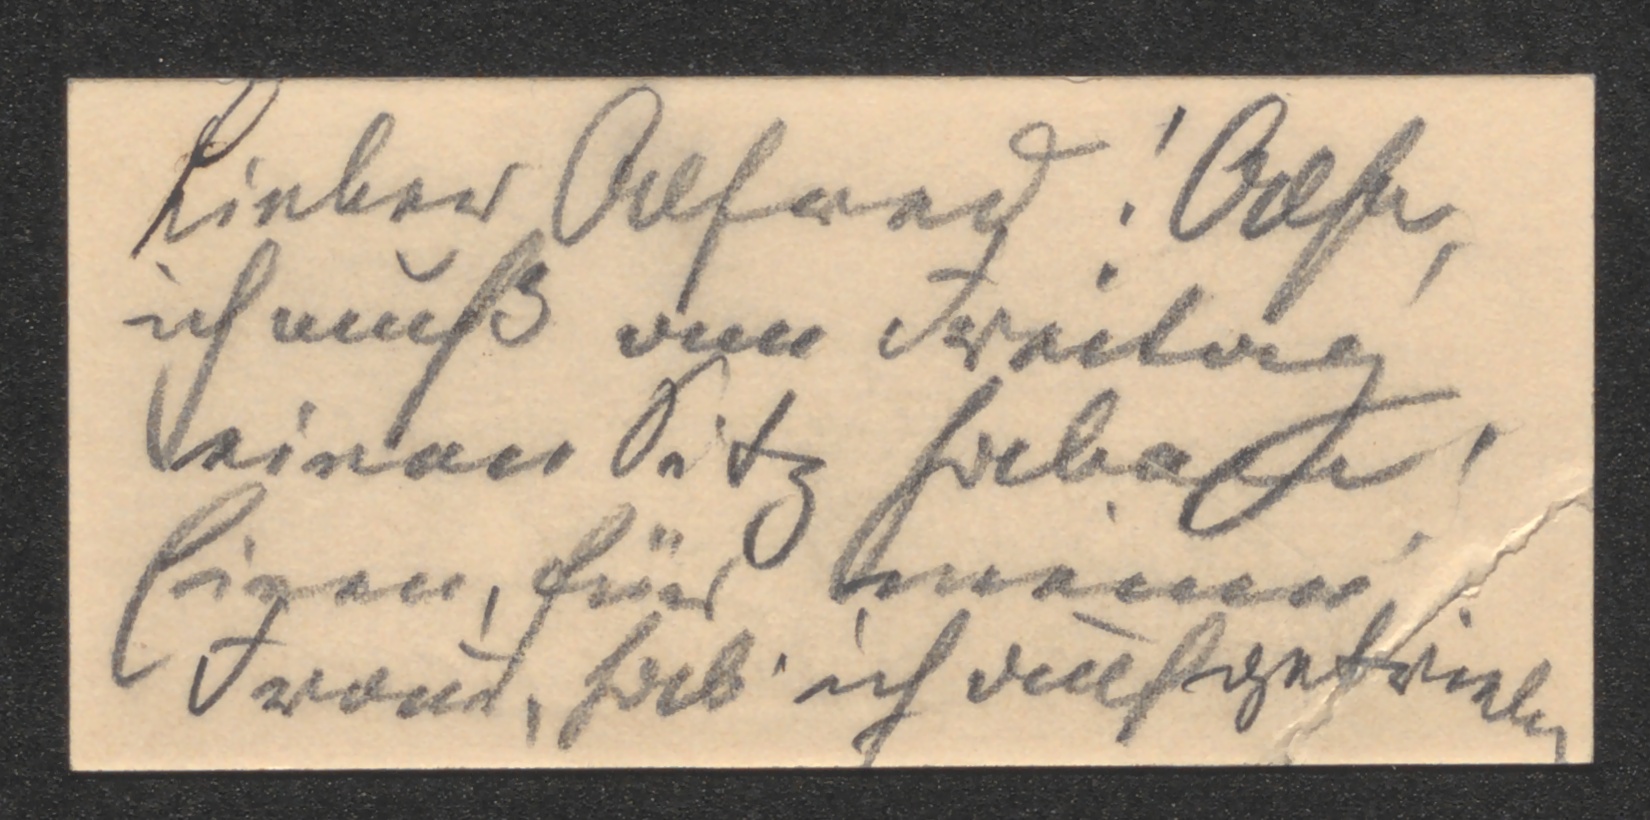 Lieber Alfred! Also,
ich muß am Freitag
einen Sitz haben!
Einen, für meine
Frau, hab' ich aufgetrieben